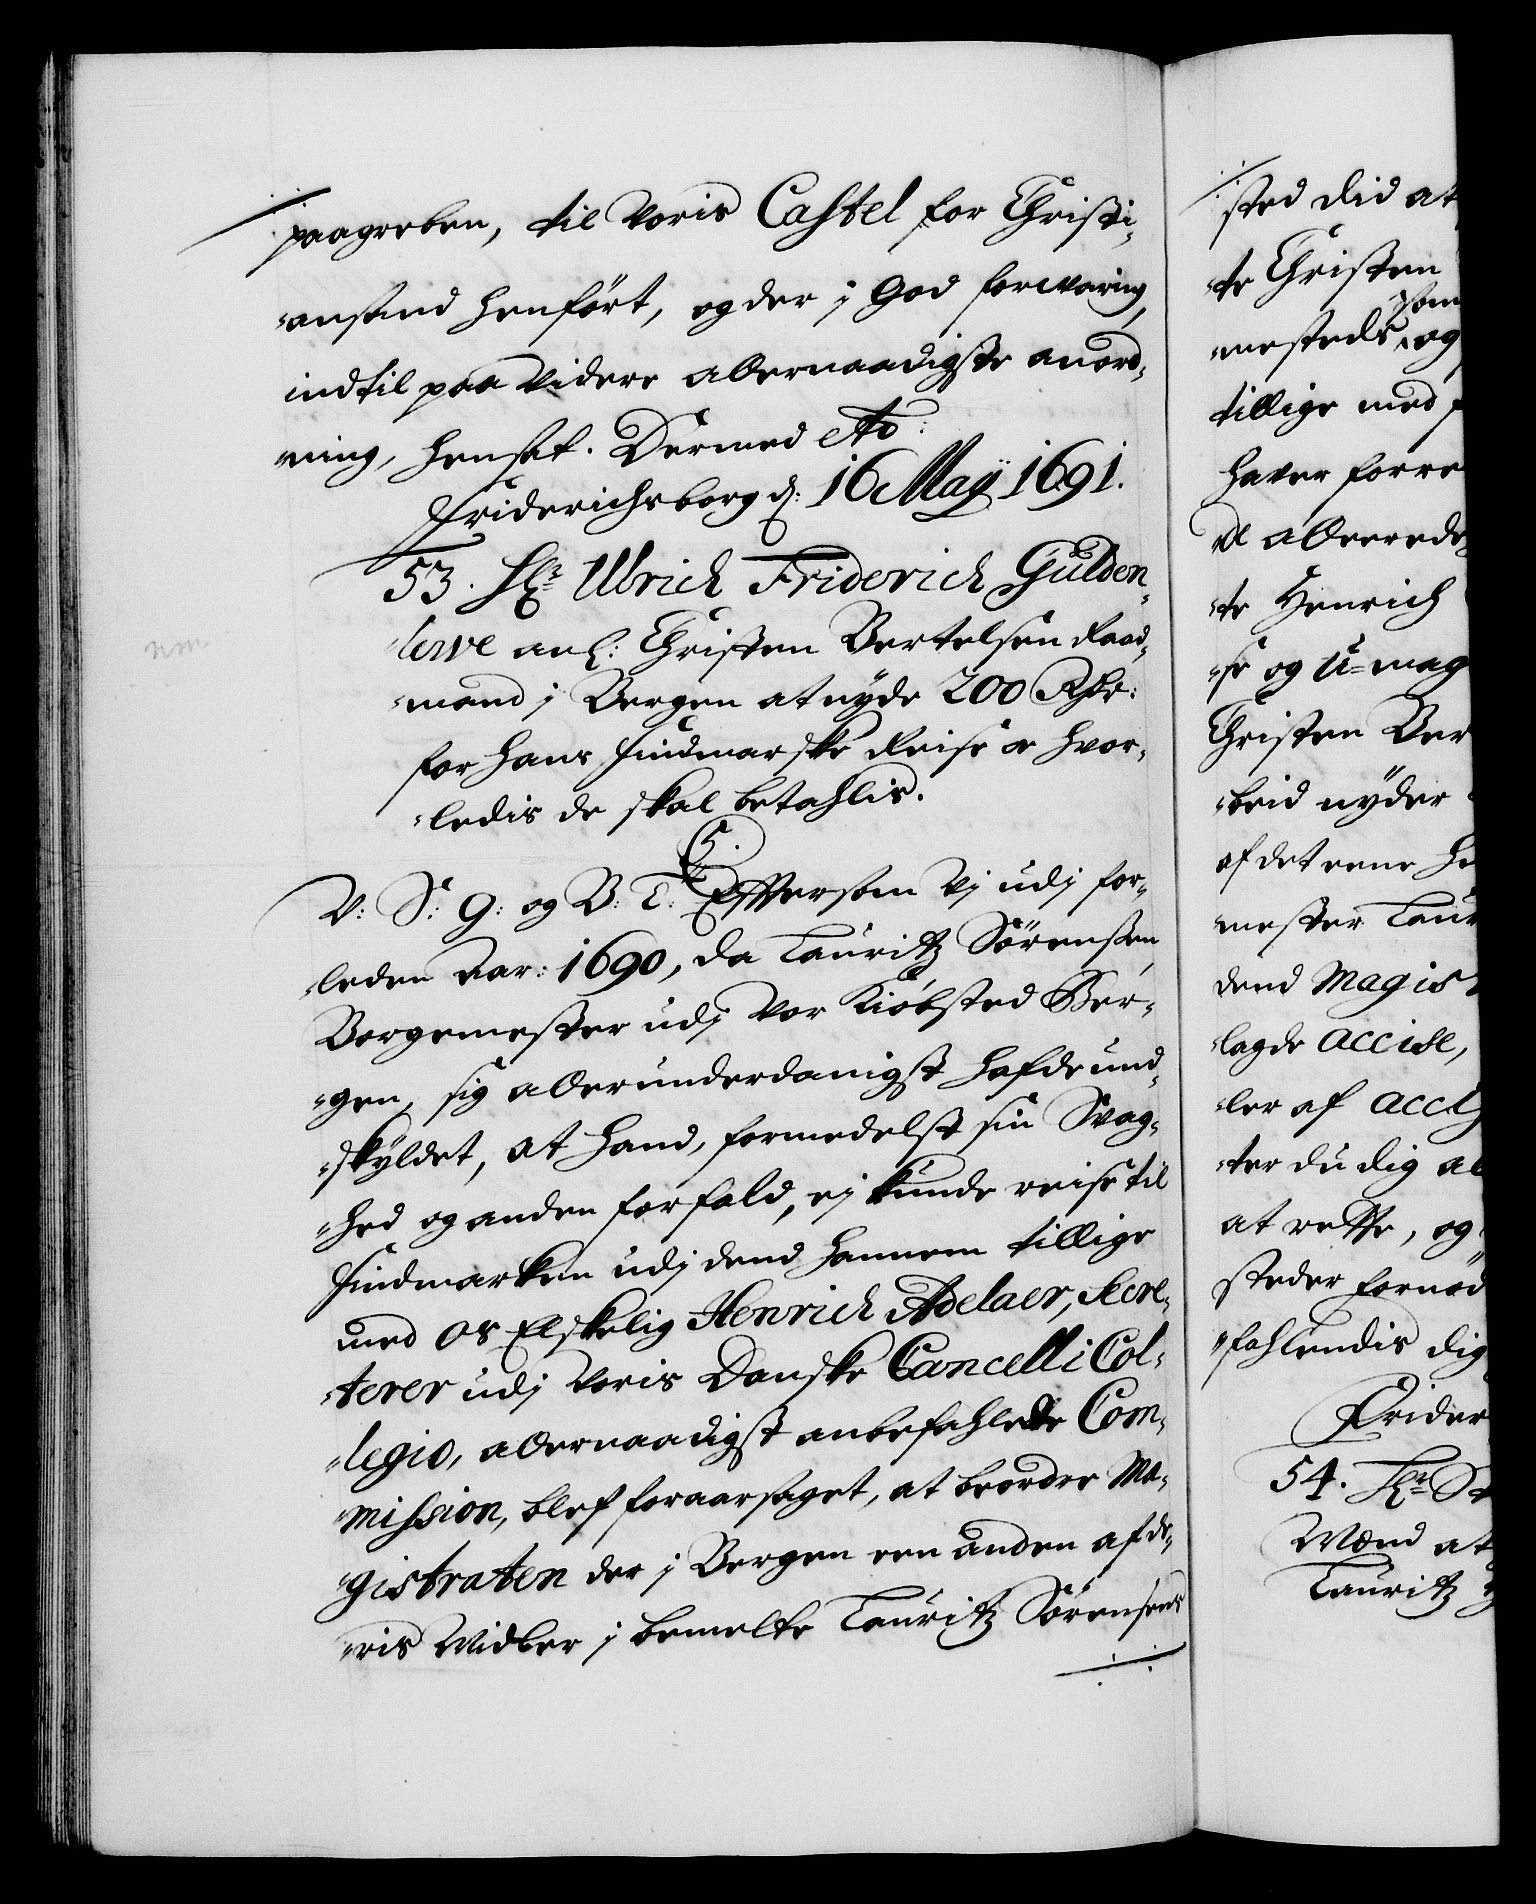 paagreben, til Voris Castel for Christi-
-ansand henført, og der i god forwaring,
indtil paa Videre allernaadigste anord-
ning, hensat. Dermed etc:
Friderichsborg d: 16 Maÿ 1691.
53. Hr Ulrich Friderich Gulden-
lewe anl: Christen Bertelsen Raad-
-mand i Bergen at nyde 200 Rdr:
for hans Findmarske Reise oc hvor-
-ledis de skal betahlis.
C5.
V: S: G: og B: T: Eftersom Vi udj for-
-leden Aar: 1690, da Lauritz Sørensen,
Borgemester udj Vor Kiöbsted Ber-
-gen, sig allerunderdanigst hafde und-
-skyldet, at hand, formedelst sin Svag-
-hed og anden forfald, ej kunde reise til
Findmarken udj dend hannem tillige
med os Elskelig Henrich Adelaer, Secre-
-terer udj Voris Danske Cancelli Col-
-legio, allernaadigst anbefahlede Com-
-mission, blef foraarsaget, at beordre Ma-
-gistraten der i Bergen een anden af de-
-ris Midler i bemelte Lauritz Sørensens
sted did at
-te Christen
-mesteds, som og
tillige med
haver forre
de allerede
-te Henrich
-se og U-mag
Christen Ber
-beid nyder
af det eene
-mester Laur
dend Magist
-lagde accise,
-ler af acci
-ter du dig al
at rette, og
steder fornød
-fahlendis dig
Frider
54. Hr St
Wænd at
Lauritz